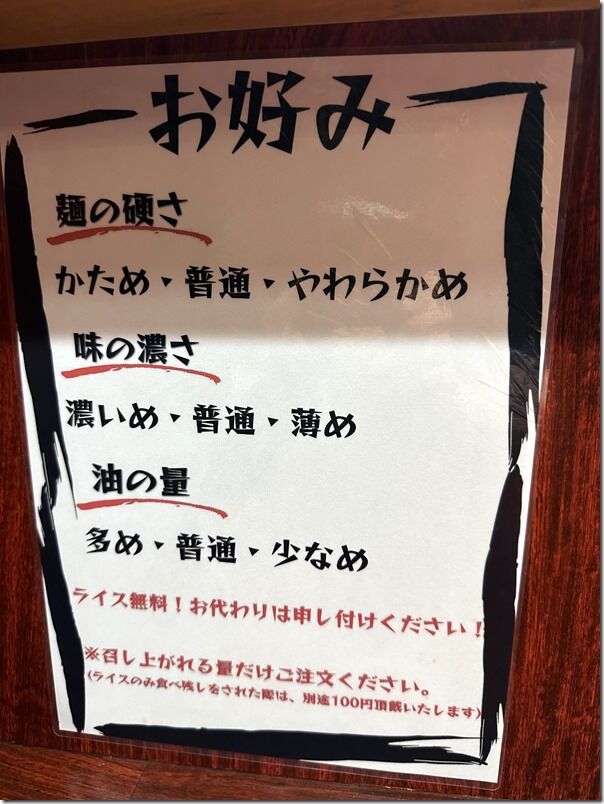 お好み
麺の硬さ
かため・普通・やわらかめ
味の濃さ
濃いめ・普通・薄め
油の量
多め・普通・少なめ
ライス無料！お代わりは申し付けください！
※召し上がれる量だけご注文ください。
(ライスのみ食べ残しをされた際は、別途100円頂戴いたします)